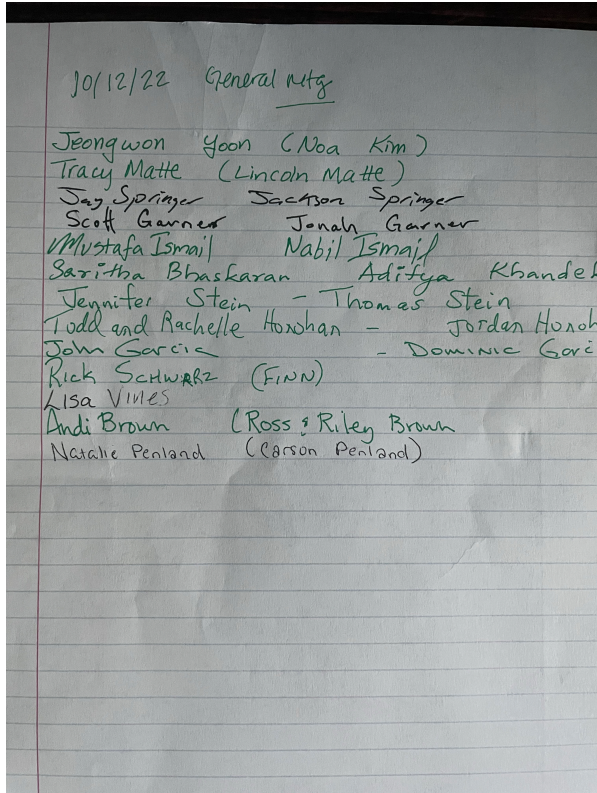 10/12/22 General mtg
Jeongwon Yoon (Noa Kim)
Tracy Matte (Lincoln Matte)
Jay Springer Jackson Springer
Scott Garner Jonah Garner
Mustafa Ismail Nabil Ismail
Saritha Bhaskaran Aditya Khandek
Jennifer Stein - Thomas Stein
Todd and Rachelle Honohan - Jordan Honoh
John Garcia - Dominic Garc
Rick SCHWARZ (FINN)
Lisa Vines
Andi Brown (Ross & Riley Brown
Natalie Penland (Carson Penland)